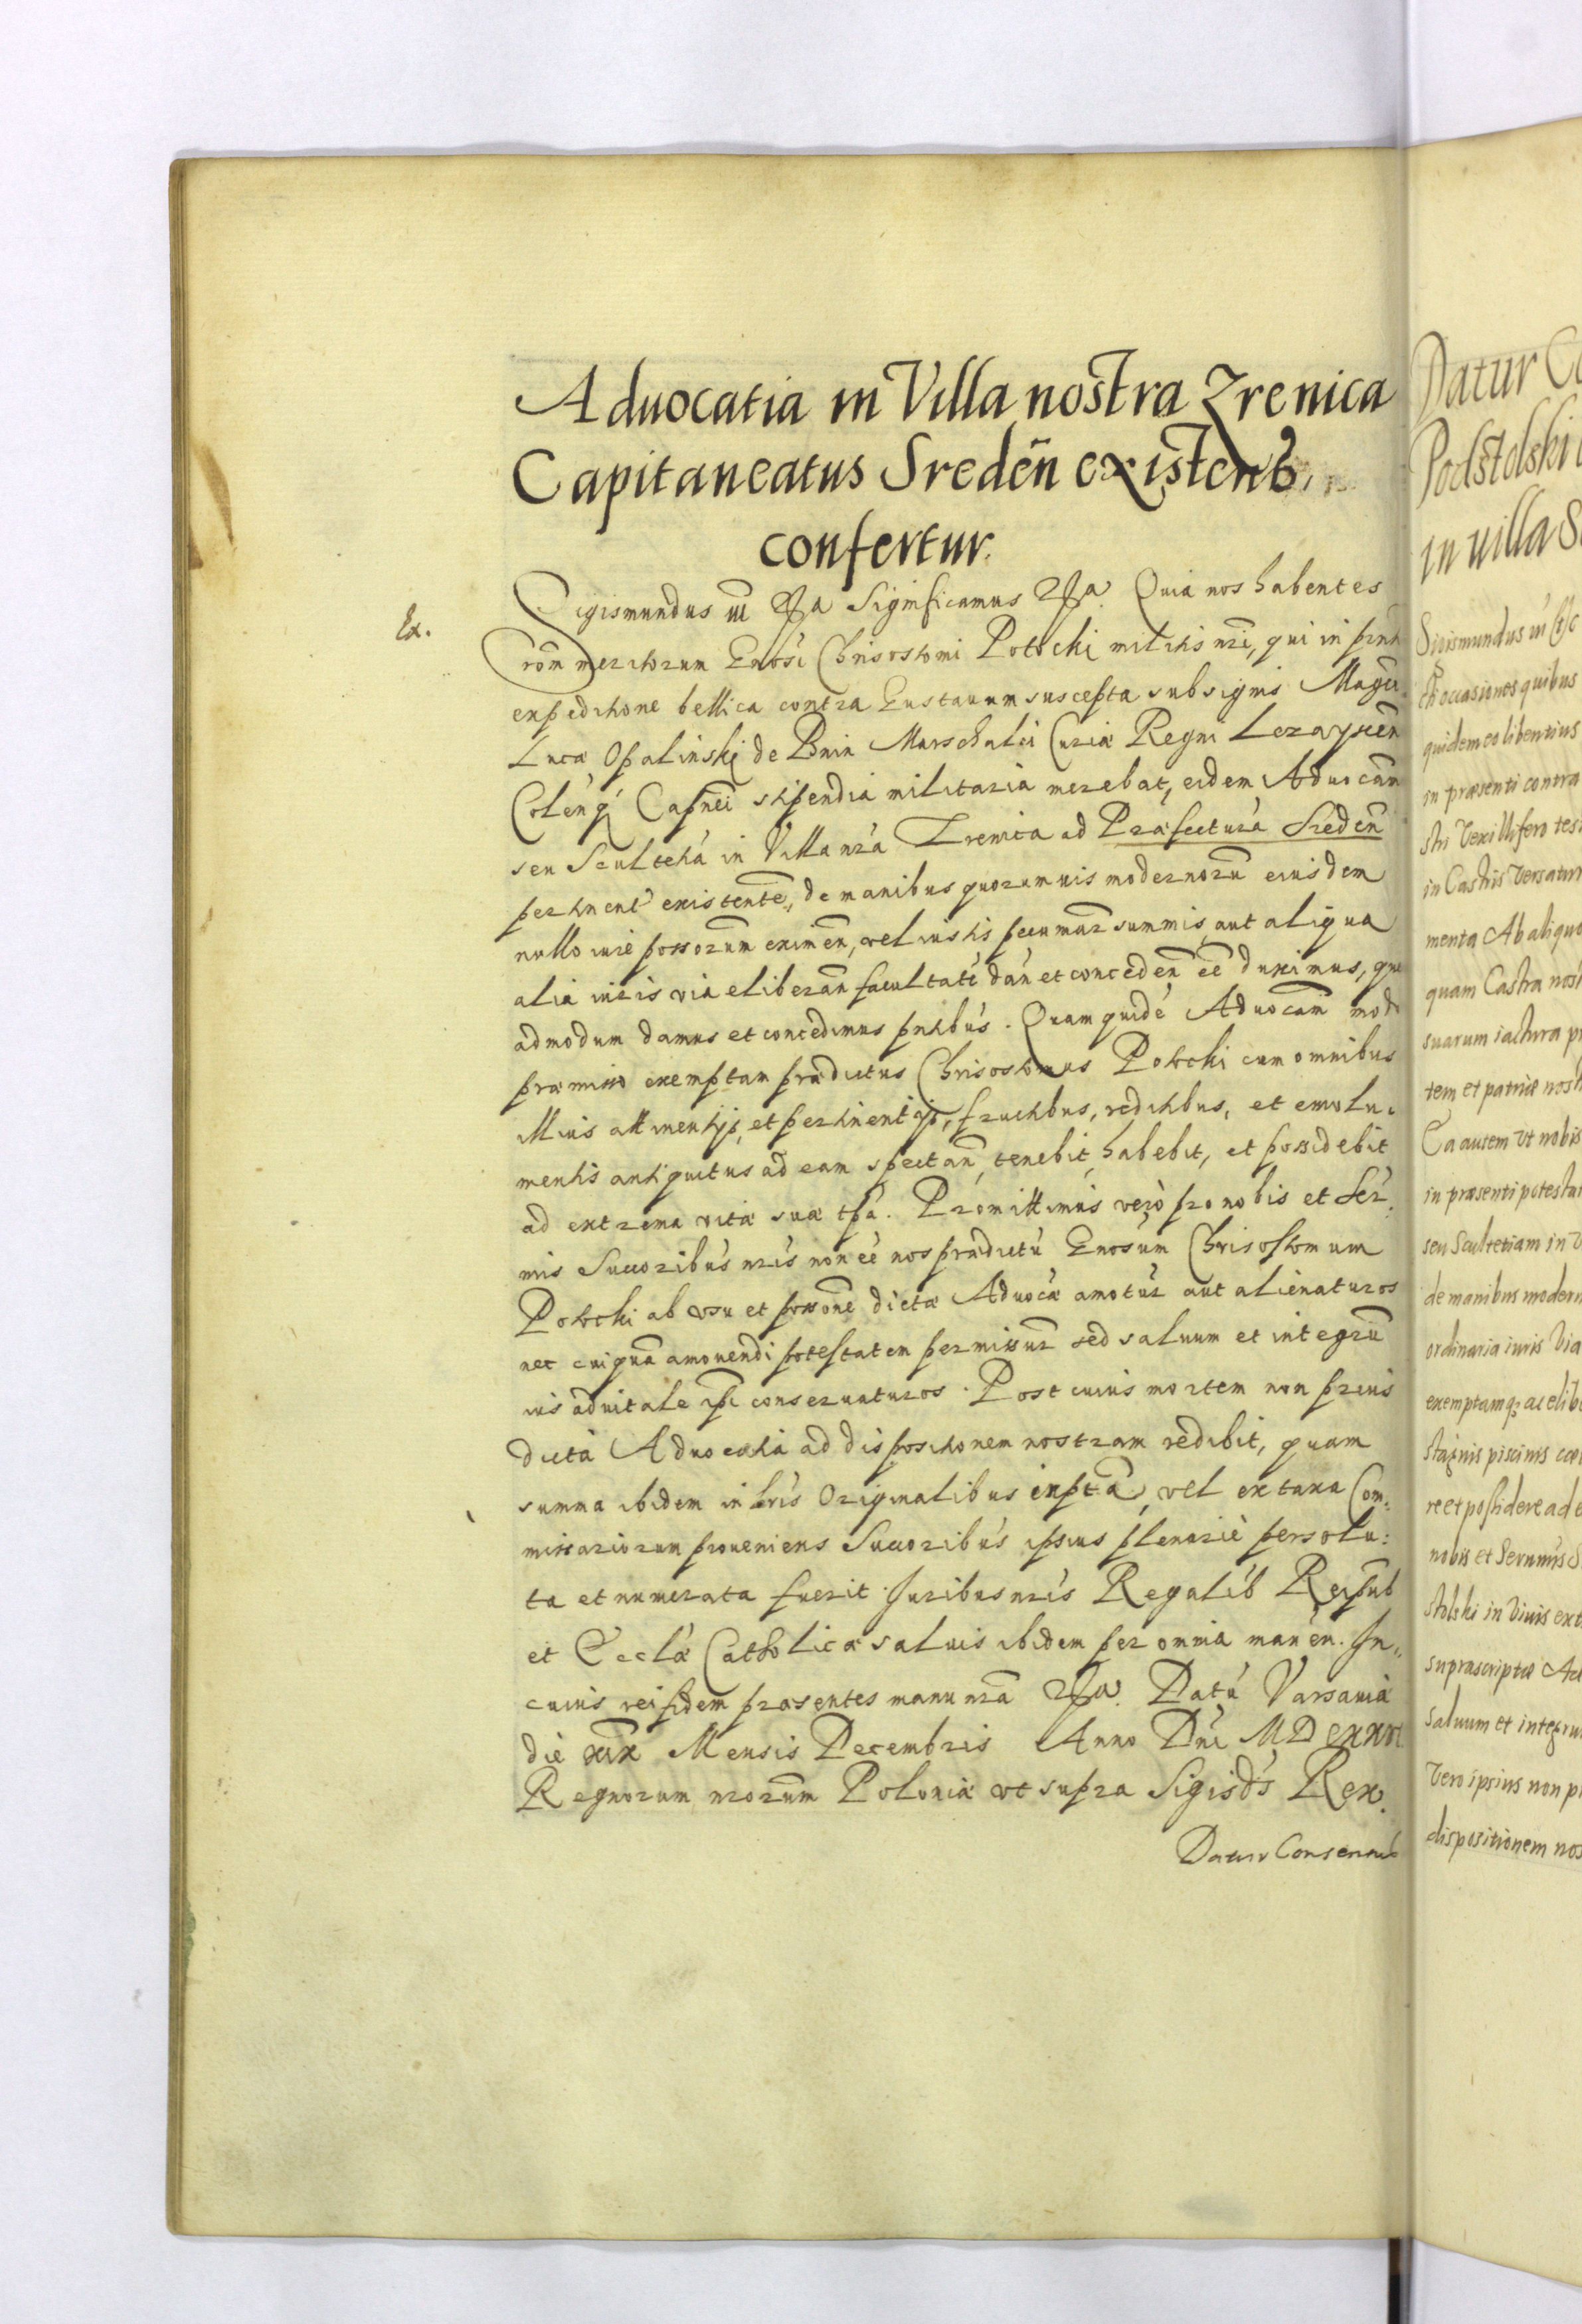 Aduocatia in Villa nostra Zrenica
Capitaneatus Sredeñ existens
confertur.
Ex.
Sigismundus III &a Significamus &a. Quia nos habentes
rōm meritorum Gnosi Chrisostomi Potocki militis nri, qui in pnti
expeditione bellica contra Gustauum suscepta sub signis Magci
Lucæ Opalinski de Bnin Marschalci Curiæ Regni Lezaysceñ
Coleñq Capnei stipendia militaria merebat, eidem Aduocām
seu Scultetiá in Villa nrá Zrenica ad Præfecturá Sredeñ
pertinent existentē, de manibus quorumuis modernorū eiusdem
nullo iure possorum eximeñ, vel iustis pecuniar summis aut aliqua
alia iuris via eliberañ facultaté dañ et concedeñ eē duximus, que
admodum damus et concedimus pntibus. Quam quidé Aduocām modo
præmisso exemptam prædictus Chrisostomus Potocki cum omnibus
illius attinentijs, et pertinentijs, fructibus, reditibus, et emolu-
mentis antiquitus ad eam spectañ, tenebit, habebit, et possidebit
ad extrema vitæ suæ tpá. Promittimus verò pro nobis et Ser.
mis Succoribus nris non eé nos prædictú Gnosum Chrisostomum
Potocki ab vsu et possone dictæ Aduocæ amotur aut alienaturos
nec cuiquā amouendi potestatem permissur sed saluum et integrū
ius aduitale ipsi conseruaturos. Post cuius mortem non prius
dictá Aduocatiá ad dispositionem nostram redibit, quam
summa ibidem in lris Originalibus inspta, vel ex taxa Com:
missariorum proueniens Succoribus ipsius plenariè persolu:
ta et numerata fuerit. Juribus nris Regalib Reipub
et Ecclæ Catholicæ saluis ibidem per omnia maneñ. In
cuius rei fidem præsentes manu nrā &a. Datú Varsauiæ
die XIX Mensis Decembris Anno Dñi MDCXXVI
Regnorum nrorum Poloniæ vt supra Sigisds Rex.
Datur Consensus
Datur Co
Podstolski
in uilla S
Sigismundus III &c
occasiones quibus
quidem eo libentius
in præsenti contra
stri Vexillifero tes
in Castris Versatur
menta Ab aliquo
quam Castra nost
suarum iactura pr
tem et patriæ nost
Ea autem vt nobis
in præsenti potestat
seu Scultetiam in V
de manibus modern
ordinaria iuris Via
exemptamq; ac elibe
stagnis piscinis
re et possidere ad e
nobis et Serenmis S
stolski in Viuis ext
suprascriptæ Ad
saluum et integru
Vero ipsius non p
dispositionem nos